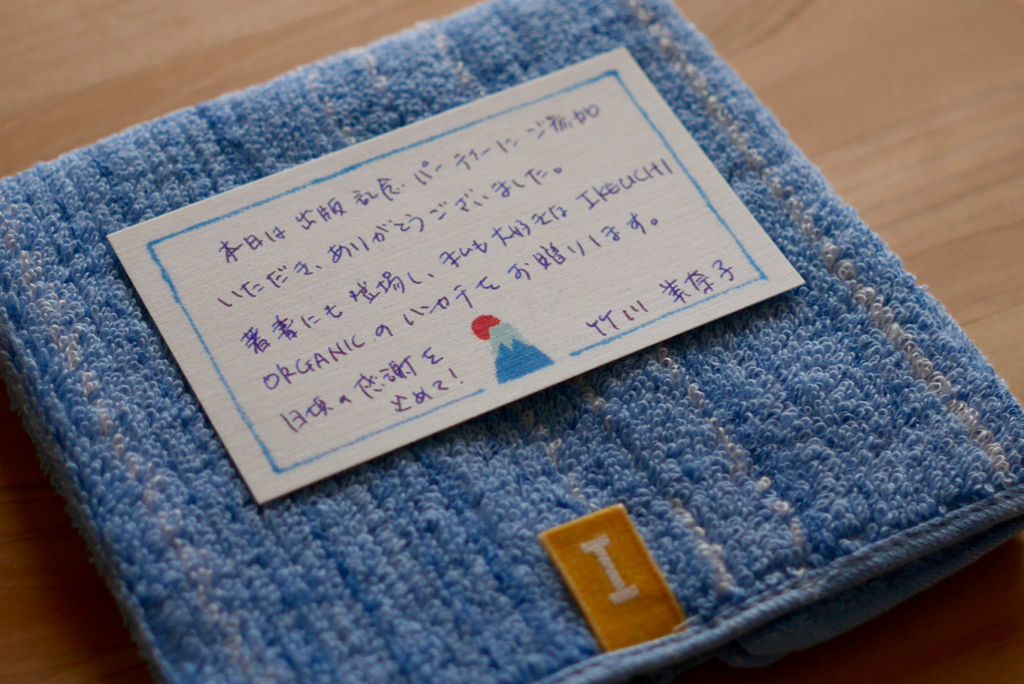 本日は出版記念パーティーにご参加
いただき、ありがとうございました。
著書にも登場し、私も大好きな IKEUCHI
ORGANIC のハンカチをお贈りします。
日頃の感謝を
込めて!
竹川 美奈子
I